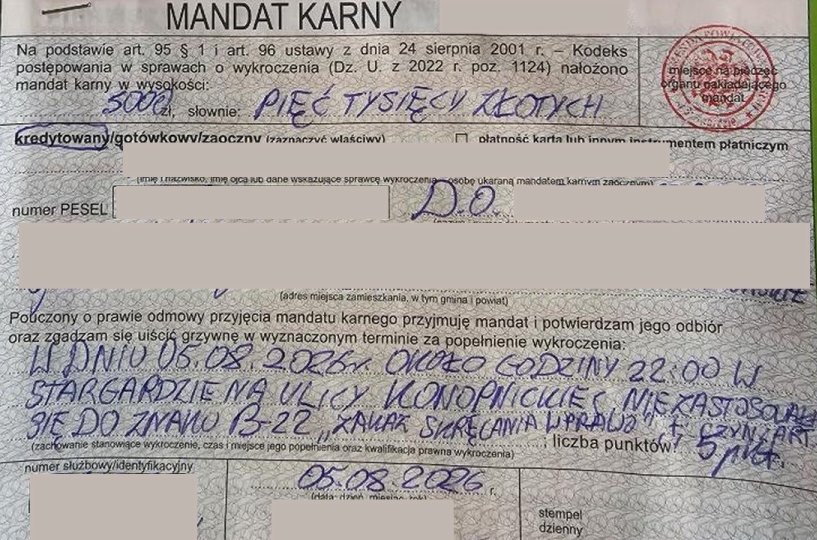 MANDAT KARNY
Na podstawie art. 95 § 1 i art. 96 ustawy z dnia 24 sierpnia 2001 r. – Kodeks
postępowania w sprawach o wykroczenia (Dz. U. z 2022 r. poz. 1124) nałożono
mandat karny w wysokości:
miejsce na pieczęć
organu nakładającego
mandat
5000 zł, słownie: PIĘĆ TYSIĘCY ZŁOTYCH
kredytowany/gotówkowy/zaoczny (zaznaczyć właściwy) płatność kartą lub innym instrumentem płatniczym
(imię i nazwisko, imię ojca lub dane wskazujące sprawcę wykroczenia osobę ukaraną mandatem karnym zaocznym)
numer PESEL D.O.
(adres miejsca zamieszkania, w tym gmina i powiat)
Pouczony o prawie odmowy przyjęcia mandatu karnego przyjmuję mandat i potwierdzam jego odbiór
oraz zgadzam się uiścić grzywnę w wyznaczonym terminie za popełnienie wykroczenia:
W DNIU 05.08.2026r. OKOŁO GODZINY 22:00 W
STARGARDZIE NA ULICY KONOPNICKIEJ NIEZASTOSOWAŁ
SIĘ DO ZNAKU B-22 „ZAKAZ SKRĘCANIA W PRAWO” tj. CZYN Z ART
(zachowanie stanowiące wykroczenie, czas i miejsce jego popełnienia oraz kwalifikacja prawna wykroczenia)
; liczba punktów: 5 pkt.
numer służbowy/identyfikacyjny
05.08.2026 r.
(data: dzień, miesiąc, rok)
stempel
dzienny